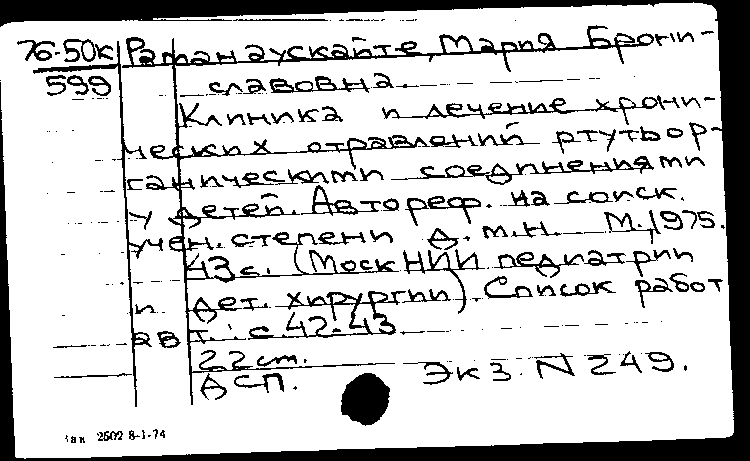 76-50к Раманаускайте, Мария Брони-
599 славовна.
Клиника и лечение хрони-
ческих отравлений ртутьор-
ганическими соединениями
у детей. Автореф. на соиск.
учен. степени д.м.н. М., 1975.
43 с. (Моск НИИ педиатрии
и дет. хирургии). Список работ
авт.: с. 42-43.
22 см.
ДСП. Экз. N 249.
Зак 2502 8-1-74